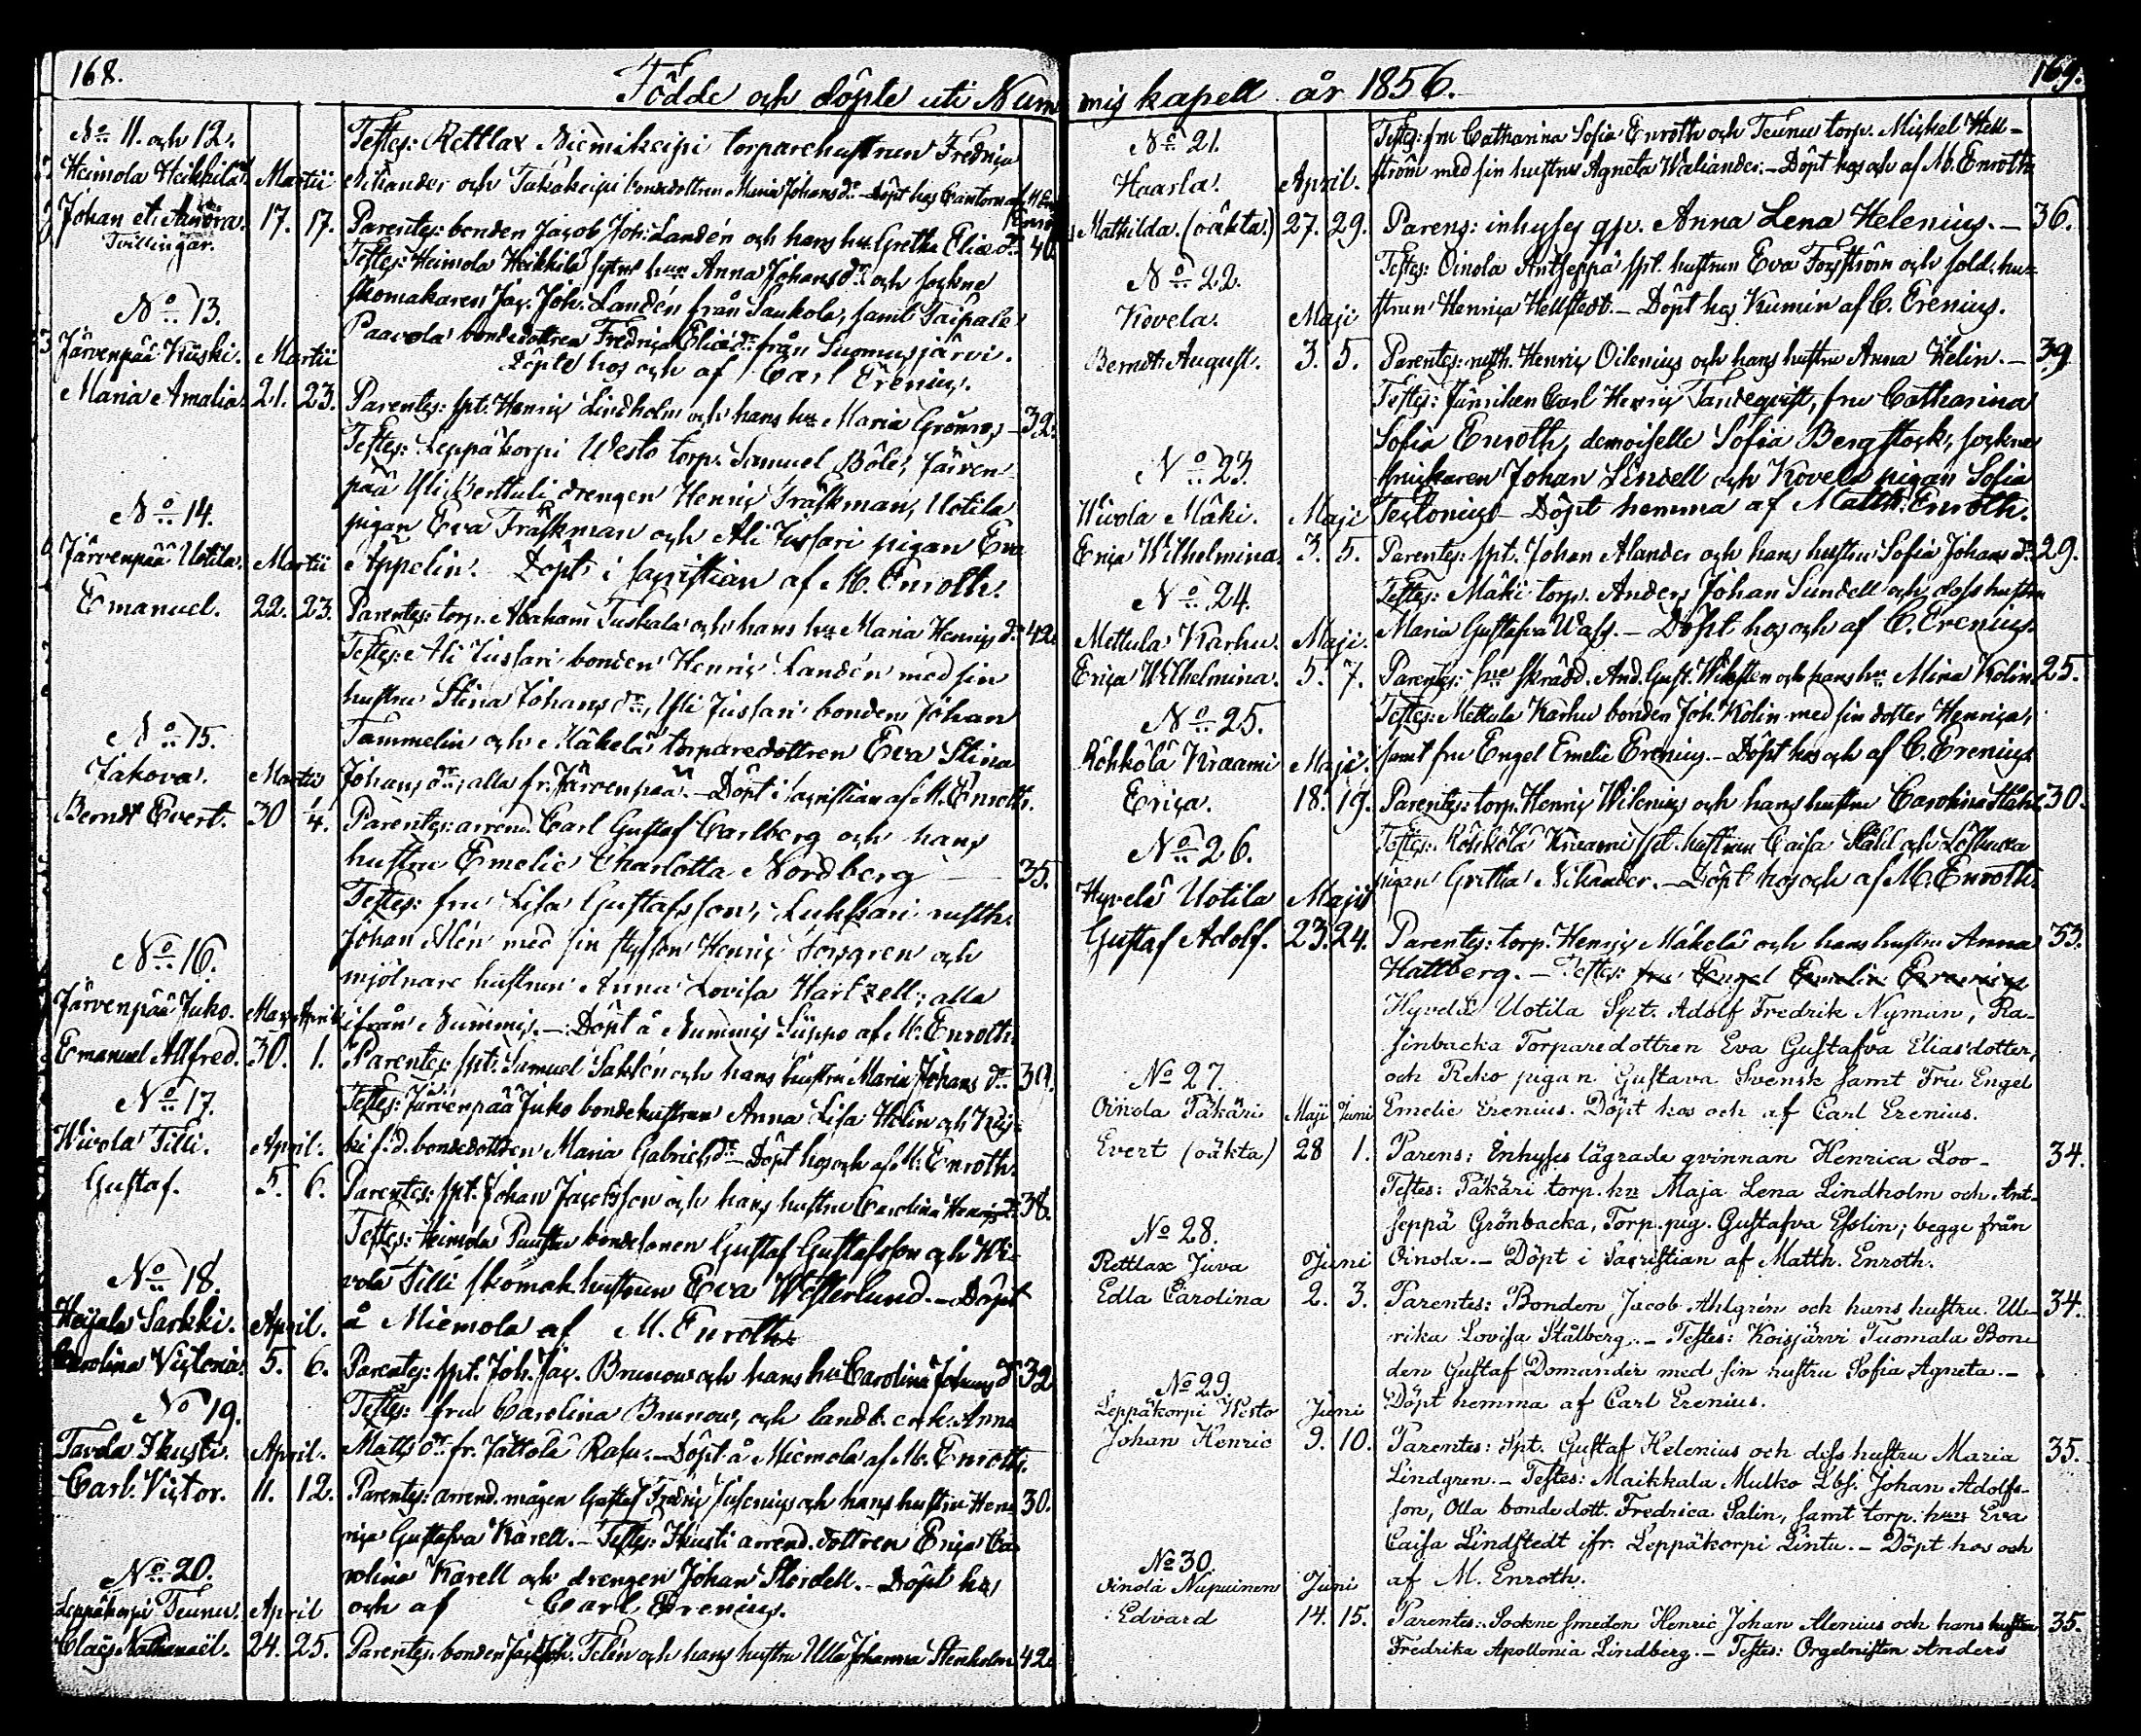 168.
Födde och döpte uti Num
No 11. och 12.
Heimola Heikkilä. Martii
Johan et Andera. 17. 17.
Tvillingar.
Testes: Rettlax Niemikeipi torparehustrun Fredrica
Nikander och bondedottren Maria Johans dr. - Döpt hos Cantorn af M. En
Parentes: bonden Jacob Joh. Landén och hans hu Gretha Elias dr 40.
Testes: Heimola Heikkilä hu Anna Johans dr och sockne
skomakaren Jac. Joh. Landén från Saukola, samt Saipale
Paavola bondedottren Fredrica Elias dr från Suomusjärvi.
Döpte hos och af Carl Erenius.
No 13.
Järvenpää Kiiski. Martii
Maria Amalia. 21. 23.
Parentes: spt. Henric Lindholm och hans hu Maria Grönros 32.
Testes: Leppäkorpi Westo torp. Samuel Böle, Järven-
pää Yli Berttuli drengen Henric Träskman, Uotila
pigan Eva Träskman och Ali Jussari pigan Eva
Äppelin. Döpt i sacristian af M. Enroth.
No 14.
Järvenpää Uotila. Martii
Emanuel. 22. 23.
Parentes: torp. Abraham Tuskala och hans hu Maria Henrics dr 42.
Testes: Ali Jussari bonden Henric Landén med sin
hustru Stina Johans dr, Yli Jussari bonden Johan
Tammelin och Mäkelä torparedottren Eva Stina
Johans dr, alla fr. Järvenpää. - Döpt i sacristian af M. Enroth.
No 15.
Jakova. Martii
Berndt Evert. 30 1/4.
Parentes: arrend. Carl Gustaf Carlberg och hans
hustru Emelie Charlotta Nordberg 35.
Testes: fru Lisa Gustafsson, Lukssari rusth.
Johan Alén med sin styfson Henric Forsgren och
mjölnare hustrun Anna Lovisa Hartzell; alla
ifrån Nummis. - Döpt å Nummis Siippo af M. Enroth.
No 16.
Järvenpää Juko. Mars April
Emanuel Alfred. 30. 1.
Parentes: spt. Samuel Sahlén och hans hustru Maria Johans dr 39.
Testes: Järvenpää Juko bondehustrun Anna Lisa Helin och Kiis-
ki f.d. bondedottren Maria Gabriels dr - Döpt hos och af M. Enroth.
No 17.
Wivola Tilli. April.
Gustaf. 5. 6.
Parentes: spt. Johan Jacobsson och hans hustru Carolina Henrics dr 38.
Testes: Heimola Puusta bondesonen Gustaf Gustafsson och Wi-
vola Tilli skomak. hustrun Eva Westerlund. - Döpt
å Miemola af M. Enroth
No 18.
Heijala Sarkki. April.
Carolina Victoria. 5. 6.
Parentes: spt. Joh. Jac. Brunow och hans hu Carolina Johans dr 32
Testes: fru Carolina Brunow, och landb. enk. Anna
Matts dr fr. Jättölä Rasu. - Döpt å Miemola af M. Enroth.
No 19.
Tavola Kusti. April.
Carl Victor. 11. 12.
Parentes: arrend. mågen Gustaf Fredric och hans hustru Hen- 30.
rica Gustafva Karell. - Testes: Kusti arrend. dottren Erica Ca-
rolina Karell och drengen Johan Slöidell. - Döpt hos
och af Carl Erenius.
No 20.
Leppäkorpi Teunu. April
Claës Nathanaël. 24. 25.
Parentes: bonden Jac. Joh. Telén och hans hustru Ulla Johanna Stenholm 42.
169.
mis kapell år 1856.
No 21.
Haarla. April.
Mathilda. (oäkta.) 27. 29.
Testes: fru Catharina Sofia Enroth och Teunu torp. Mickel Hell-
ström med sin hustru Agneta Waliander. - Döpt hos och af M. Enroth
Parens: inhyses qv. Anna Lena Helenius. - 36.
No 22.
Kovela. Maji
Berndt August. 3. 5.
Testes: Oinola Antseppä spt. hustrun Eva Forsström och sold. hu-
strun Henrica Hellstedt. - Döpt hos Kumin af C. Erenius.
Parentes: rusth. Henric Oilenius och hans hustru Anna Helin. - 39
Testes: Junriken Carl Henric Tandeqvist, fru Catharina
Sofia Enroth, demoiselle Sofia Bergstock, sockne
snickaren Johan Lindell och Kovela pigan Sofia
Teslonius - Döpt hemma af Matth. Enroth.
No 23.
Wivola Mäki. Maji
Erica Wilhelmina. 3. 5.
Parentes: spt. Johan Alander och hans hustru Sofia Johans dr 29.
Testes: Mäki torp. Anders Johan Sundell och dess hustru
Maria Gustafva Wass. - Döpt hos och af C. Erenius.
No 24.
Mettula Karhu. Maji.
Erica Wilhelmina. 5. 7.
Parentes: skrädd. And. Gust. Wiksten och hans hu Mina Kolin 25.
Testes: Mettula Karhu bonden Joh. Kolin med sin dotter Henrica,
samt fru Engel Emelie Erenius. - Döpt hos och af C. Erenius.
No 25.
Röhkölä Kraami Maji.
Erica. 18. 19.
Parentes: torp. Henric Wilenius och hans hustru Carolina Ståhl 30.
Testes: Röhkölä Kraami spt. hustrun Caisa Ståhl och
pigan Gretha Nikander. - Döpt hos och af M. Enroth.
No 26.
Hyvelä Uotila Maji
Gustaf Adolf. 23. 24.
Parentes: torp. Henric Mäkelä och hans hustru Anna 33.
Hallberg. - Testes: fru Engel Emelie Erenius
Hyvelä Uotila Spt. Adolf Fredrik Nyman, Ra-
sinbacka Torparedottren Eva Gustafva Elias'dotter,
och Reko pigan Gustava Svensk samt Fru Engel
Emelie Erenius. Döpt hos och af Carl Erenius.
No 27.
Oinola Päkäri Maji Juni
Evert (oäkta) 28 1.
Parens: Inhyses lägrade qvinnan Henrica Loo- 34.
Testes: Päkäri torp. hu Maja Lena Lindholm och Ant-
seppä Grönbacka, Torp. pig. Gustafva Esslin; begge från
Oinola. - Döpt i Sacristian af Matth. Enroth.
No 28.
Rettlax Juva Juni
Edla Carolina 2. 3.
Parentes: Bonden Jacob Ahlgrén och hans hustru Ul- 34.
rika Lovisa Stålberg. - Testes: Koisjärvi Tuomala Bon-
den Gustaf Domander med sin hustru Sofia Agneta. -
Döpt hemma af Carl Erenius.
No 29.
Leppäkorpi Westo Juni
Johan Henric 9. 10.
Parentes: Spt. Gustaf Helenius och dess hustru Maria 35.
Lindgren. - Testes: Maikkala Mulko Lbs. Johan Adolfs-
son, Olla bondedott. Fredrica Salin, samt torp. hun Eva
Caisa Lindstedt ifr. Leppäkorpi Lintu. - Döpt hos och
af M. Enroth.
No 30.
Oinola Nupuinen Juni
Edvard 14. 15.
Parentes: Sockne smeden Henric Johan Alenius och hans hustru 35.
Fredrika Apollonia Lindberg. - Testes: Orgelnisten Anders